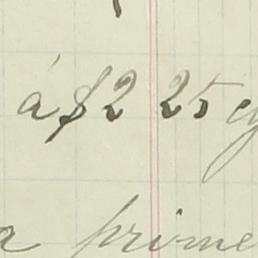 á $2 25 c
a prime